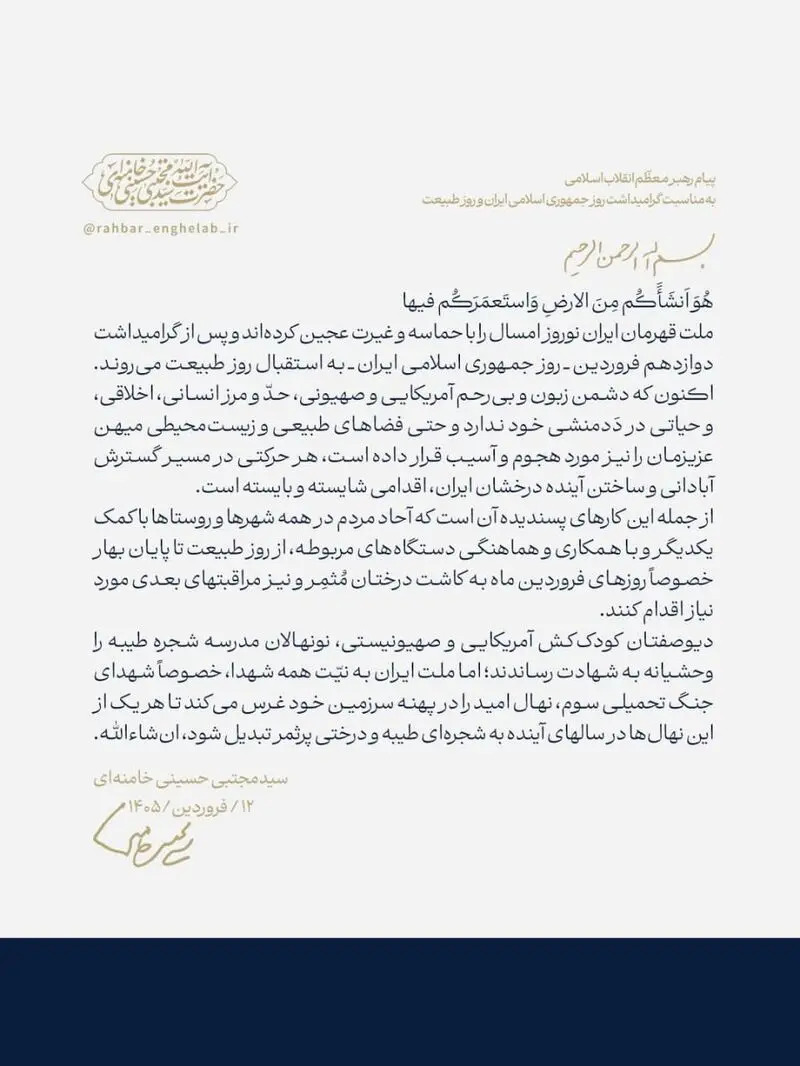 حضرت آیت‌الله سیدمجتبی حسینی خامنه‌ای
@rahbar_enghelab_ir
پیام رهبر معظّم انقلاب اسلامی
به مناسبت گرامیداشت روز جمهوری اسلامی ایران و روز طبیعت
بسم الله الرحمن الرحیم
هُوَ اَنشَأَكُم مِنَ الارضِ وَاستَعمَرَكُم فیها
ملت قهرمان ایران نوروز امسال را با حماسه و غیرت عجین کرده‌اند و پس از گرامیداشت
دوازدهم فروردین ـ روز جمهوری اسلامی ایران ـ به استقبال روز طبیعت می‌روند.
اکنون که دشمن زبون و بی‌رحم آمریکایی و صهیونی، حدّ و مرز انسانی، اخلاقی،
و حیاتی در دَدمنشی خود ندارد و حتی فضاهای طبیعی و زیست‌محیطی میهن
عزیزمان را نیز مورد هجوم و آسیب قرار داده است، هر حرکتی در مسیر گسترش
آبادانی و ساختن آینده درخشان ایران، اقدامی شایسته و بایسته است.
از جمله این کارهای پسندیده آن است که آحاد مردم در همه شهرها و روستاها با کمک
یکدیگر و با همکاری و هماهنگی دستگاه‌های مربوطه، از روز طبیعت تا پایان بهار
خصوصاً روزهای فروردین ماه به کاشت درختان مُثمِر و نیز مراقبتهای بعدی مورد
نیاز اقدام کنند.
دیوصفتان کودک‌کش آمریکایی و صهیونیستی، نونهالان مدرسه شجره طیبه را
وحشیانه به شهادت رساندند؛ اما ملت ایران به نیّت همه شهدا، خصوصاً شهدای
جنگ تحمیلی سوم، نهال امید را در پهنه سرزمین خود غرس می‌کند تا هر یک از
این نهال‌ها در سالهای آینده به شجره‌ای طیبه و درختی پرثمر تبدیل شود، ان‌شاءالله.
سیدمجتبی حسینی خامنه‌ای
۱۲/ فروردین /۱۴۰۵